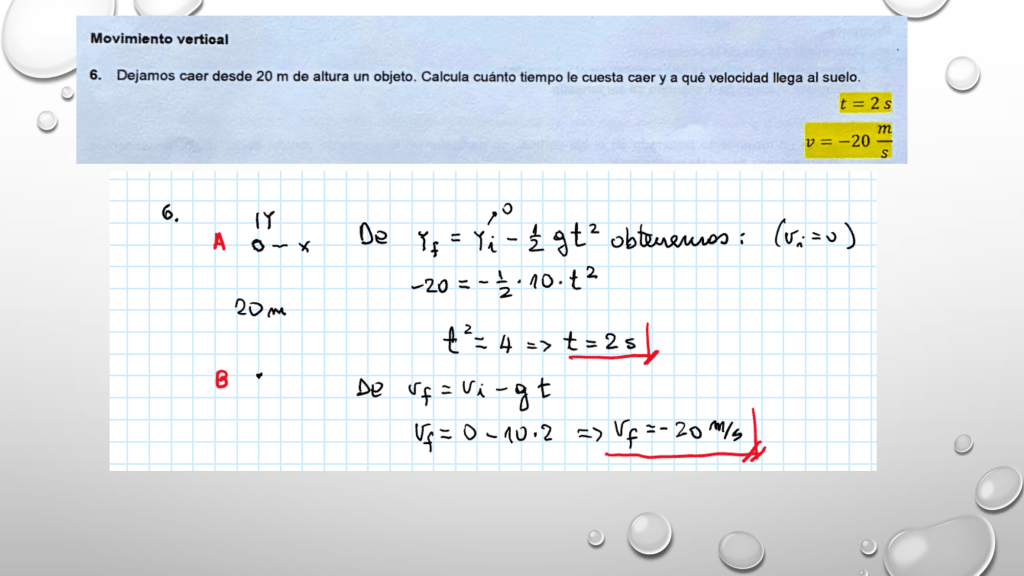 Movimiento vertical
6. Dejamos caer desde 20 m de altura un objeto. Calcula cuánto tiempo le cuesta caer y a qué velocidad llega al suelo.
t = 2 s
v = −20 m/s
6.
A
Y
0 — x
20 m
B
De Yf = Yi - 1/2 gt² obtenemos: (vi = 0)
0
-20 = - 1/2 · 10 · t²
t² = 4 => t = 2 s
De vf = vi - gt
vf = 0 - 10·2 => vf = -20 m/s